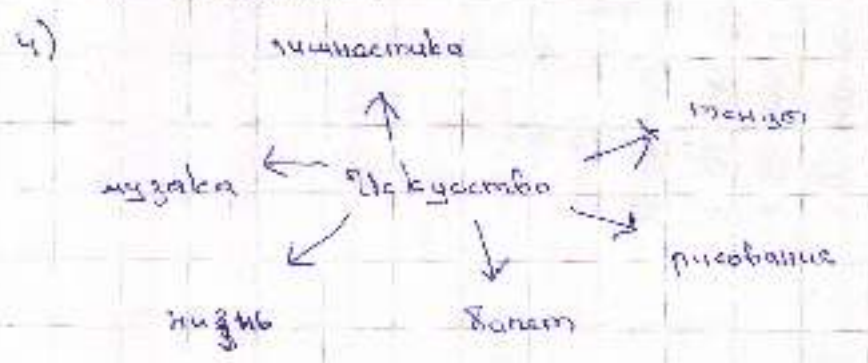 4)
гимнастика
танцы
музыка Искусство
рисование
жизнь балет